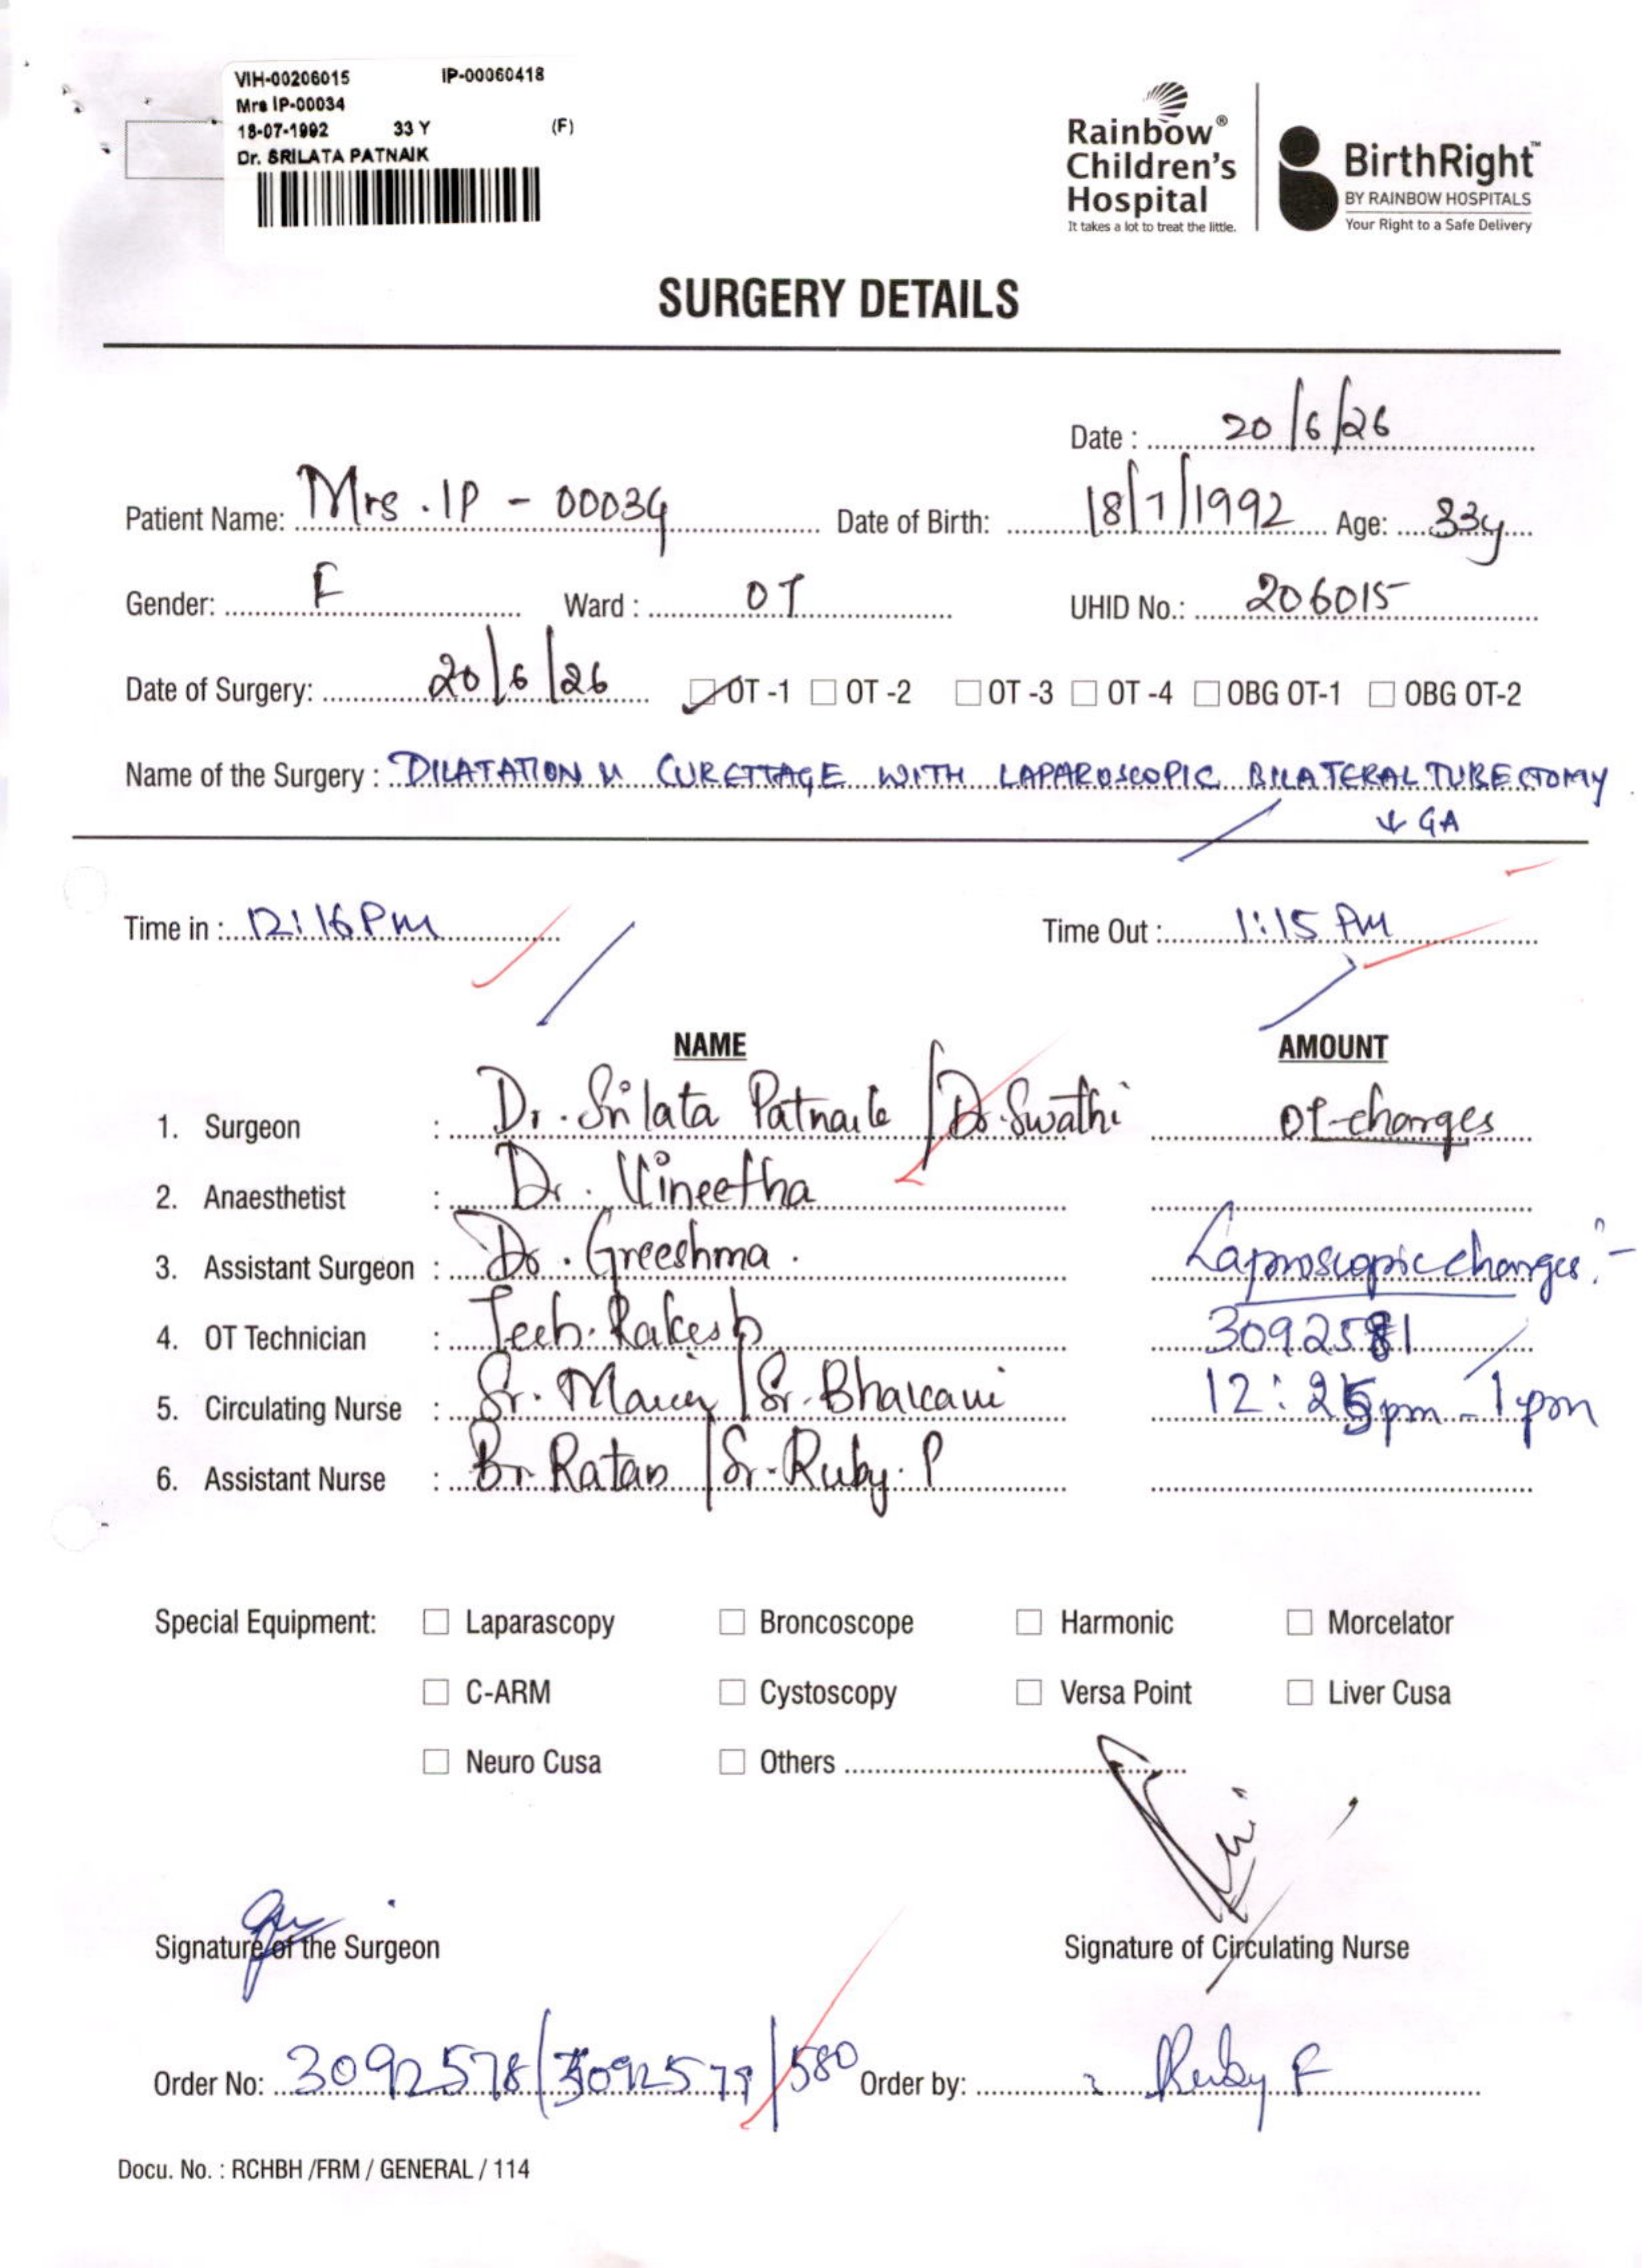 VIH-00206015 IP-00060418
Mrs IP-00034
18-07-1992 33 Y (F)
Dr. SRILATA PATNAIK
Rainbow® Children's Hospital
It takes a lot to treat the little.
BirthRight™
BY RAINBOW HOSPITALS
Your Right to a Safe Delivery
SURGERY DETAILS
Date : 20/6/26
Patient Name: Mrs. IP - 00034 Date of Birth: 18/7/1992 Age: 33y
Gender: F Ward : OT UHID No.: 206015
Date of Surgery: 20/6/26 ☑ OT -1 ☐ OT -2 ☐ OT -3 ☐ OT -4 ☐ OBG OT-1 ☐ OBG OT-2
Name of the Surgery : DILATATION & CURETTAGE WITH LAPAROSCOPIC BILATERAL TUBECTOMY
↓ GA
Time in : 12:16 Pm Time Out : 1:15 PM
NAME AMOUNT
1. Surgeon : Dr. Srilata Patnaik / Dr. Swathi OT-charges
2. Anaesthetist : Dr. Vineetha
3. Assistant Surgeon : Dr. Greeshma. Laproscopic charges:-
4. OT Technician : Tech. Rakesh 3092581
5. Circulating Nurse : Sr. / Sr. 12:25pm - 1pm
6. Assistant Nurse : Br. Ratan / Sr. Ruby. P
Special Equipment: ☐ Laparascopy ☐ Broncoscope ☐ Harmonic ☐ Morcelator
☐ C-ARM ☐ Cystoscopy ☐ Versa Point ☐ Liver Cusa
☐ Neuro Cusa ☐ Others
Signature of the Surgeon Signature of Circulating Nurse
Order No: 3092578/3092579/580 Order by: Ruby P
Docu. No. : RCHBH /FRM / GENERAL / 114